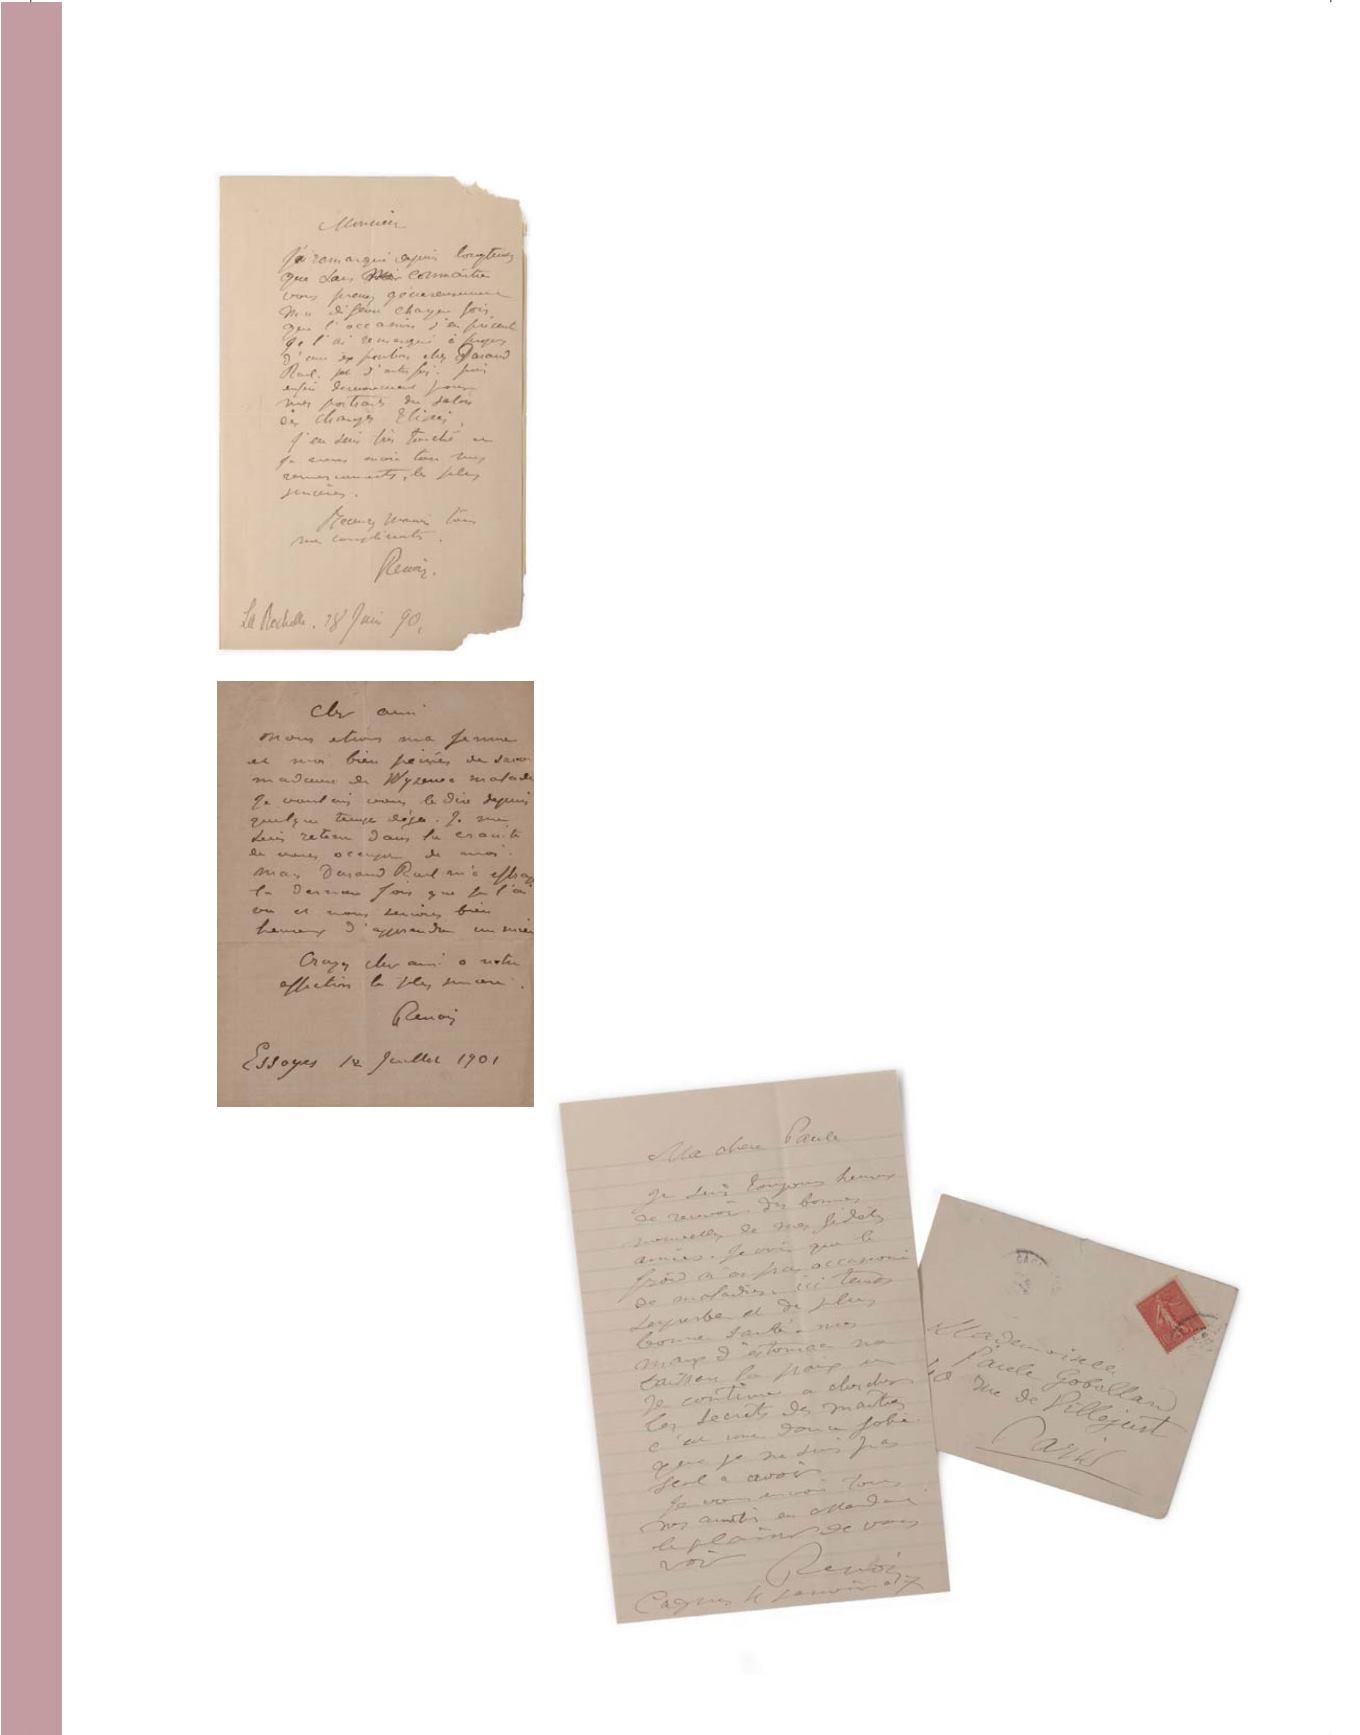 Monsieur
J'ai remarqué depuis longtemps
que sans connaître
vous prenez généreusement
ma chaque fois
que l'occasion s'en présente
je l'ai remarqué à propos
d'une exposition chez Durand
Ruel. et d'autres fois. puis
enfin dernièrement pour
mes portraits du salon
des Champs Elisées,
j'en suis très touché et
je vous envoie tous mes
remerciements, les plus
sincères.
Recevez Monsieur tous
mes compliments.
Renoir.
La Rochelle. 28 Juin 90.
Cher ami
Nous etions ma femme
et moi bien peinés de savoir
madame de Wyzewa malade
Je voulais vous le dire depuis
quelque temps déja. Je me
suis retenu dans la crainte
de vous occuper de moi.
mais Durand Ruel m'a
la derniere fois que je l'ai
vu et nous serions bien
heureux d'apprendre un mieux
Croyez cher ami a notre
affection la plus sincere.
Renoir
Essoyes 12 Juillet 1901
Ma chere Paule
Je suis toujours heureux
de recevoir des bonnes
nouvelles de mes fideles
amies. Je vois que le
froid n'a pas occasionné
de maladies. ici temps
superbe et de plus
bonne santé. mes
maux d'estomac me
laissent la paix et
je continue a chercher
les secrets des maitres
c'est une douce folie
que je ne suis pas
seul a avoir
Je vous envoie tous
nos amitiés en attendant
le plaisir de vous
voir
Renoir
Cagnes janvier
Mademoiselle
Paule Gobillard
40 rue de Villejust
Paris